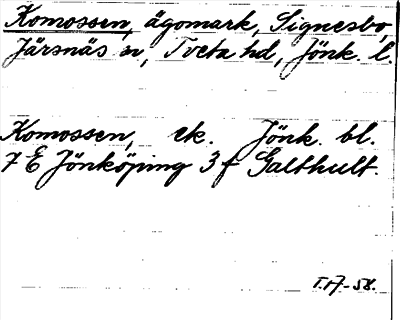 Komossen, ägomark, Signesbo,
Järsnäs sn, Tveta hd, Jönk. l.
Komossen, ek. Jönk. bl.
7 E Jönköping 3 f Galthult.
T.A-58.